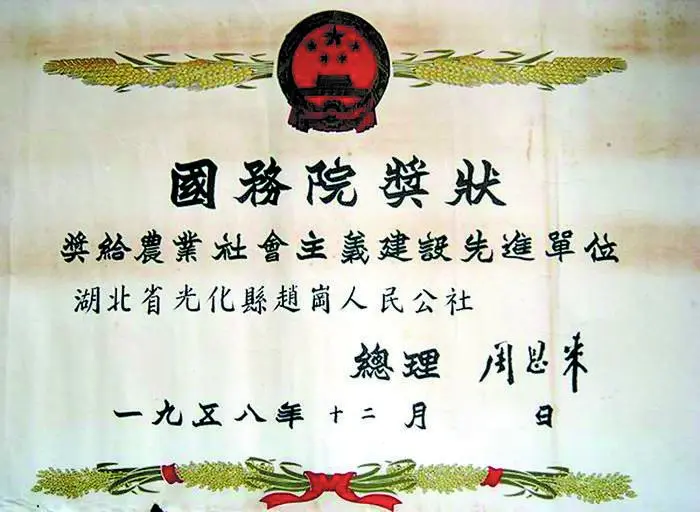 國務院獎狀
獎給農業社會主義建設先進單位
湖北省光化縣趙崗人民公社
總理 周恩来
一九五八年十二月 日